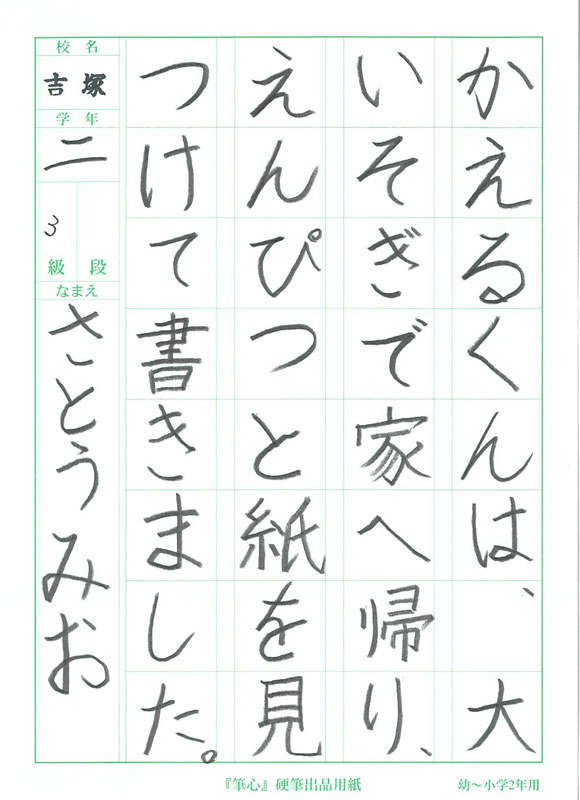 かえるくんは、大
いそぎで家へ帰り、
えんぴつと紙を見
つけて書きました。
校名
吉塚
学年
二
3
級 段
なまえ
さとうみお
『筆心』硬筆出品用紙
幼～小学2年用